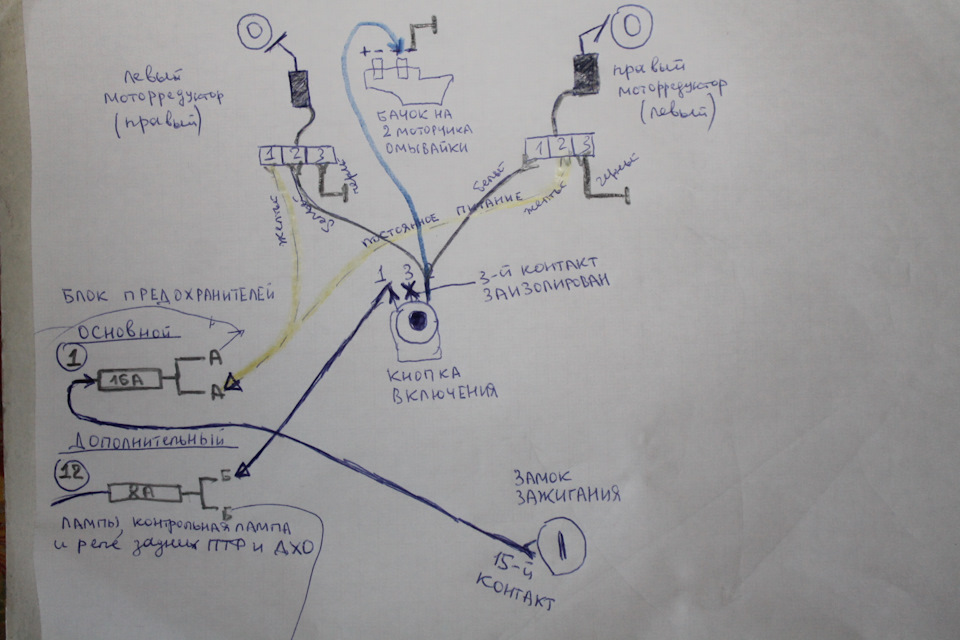 левый
моторредуктор
(правый)
+ -
+
бачок на
2 моторчика
омывайки
правый
моторредуктор
(левый)
1 2 3
1 2 3
черн
желт
белый
белый
желтый
черный
постоянное питание
1 3 2
3-й контакт
заизолирован
Блок предохранителей
Основной
1
16А
А
А
кнопка
включения
Дополнительный
12
8А
Б
Б
лампы, контрольная лампа
и реле задних ПТФ и ДХО
замок
зажигания
15-й
контакт